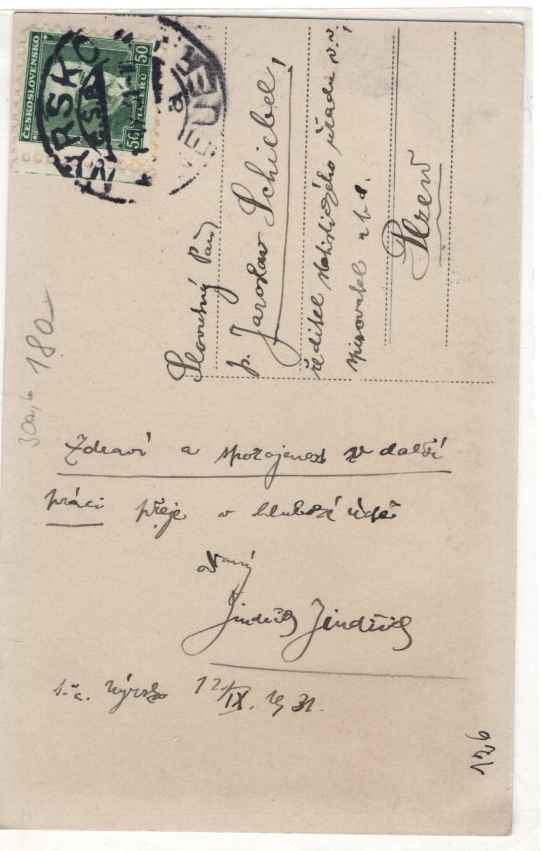 ČESKOSLOVENSKO
50
Slovutný Pán
p. Jaroslav Schiebel,
ředitel úřadu v.v.
spisovatel
Plzeň
180
Zdraví a spokojenost v další
práci přeje v hluboké úctě
Jindřich Jindřich
12/IX. 1931.
126